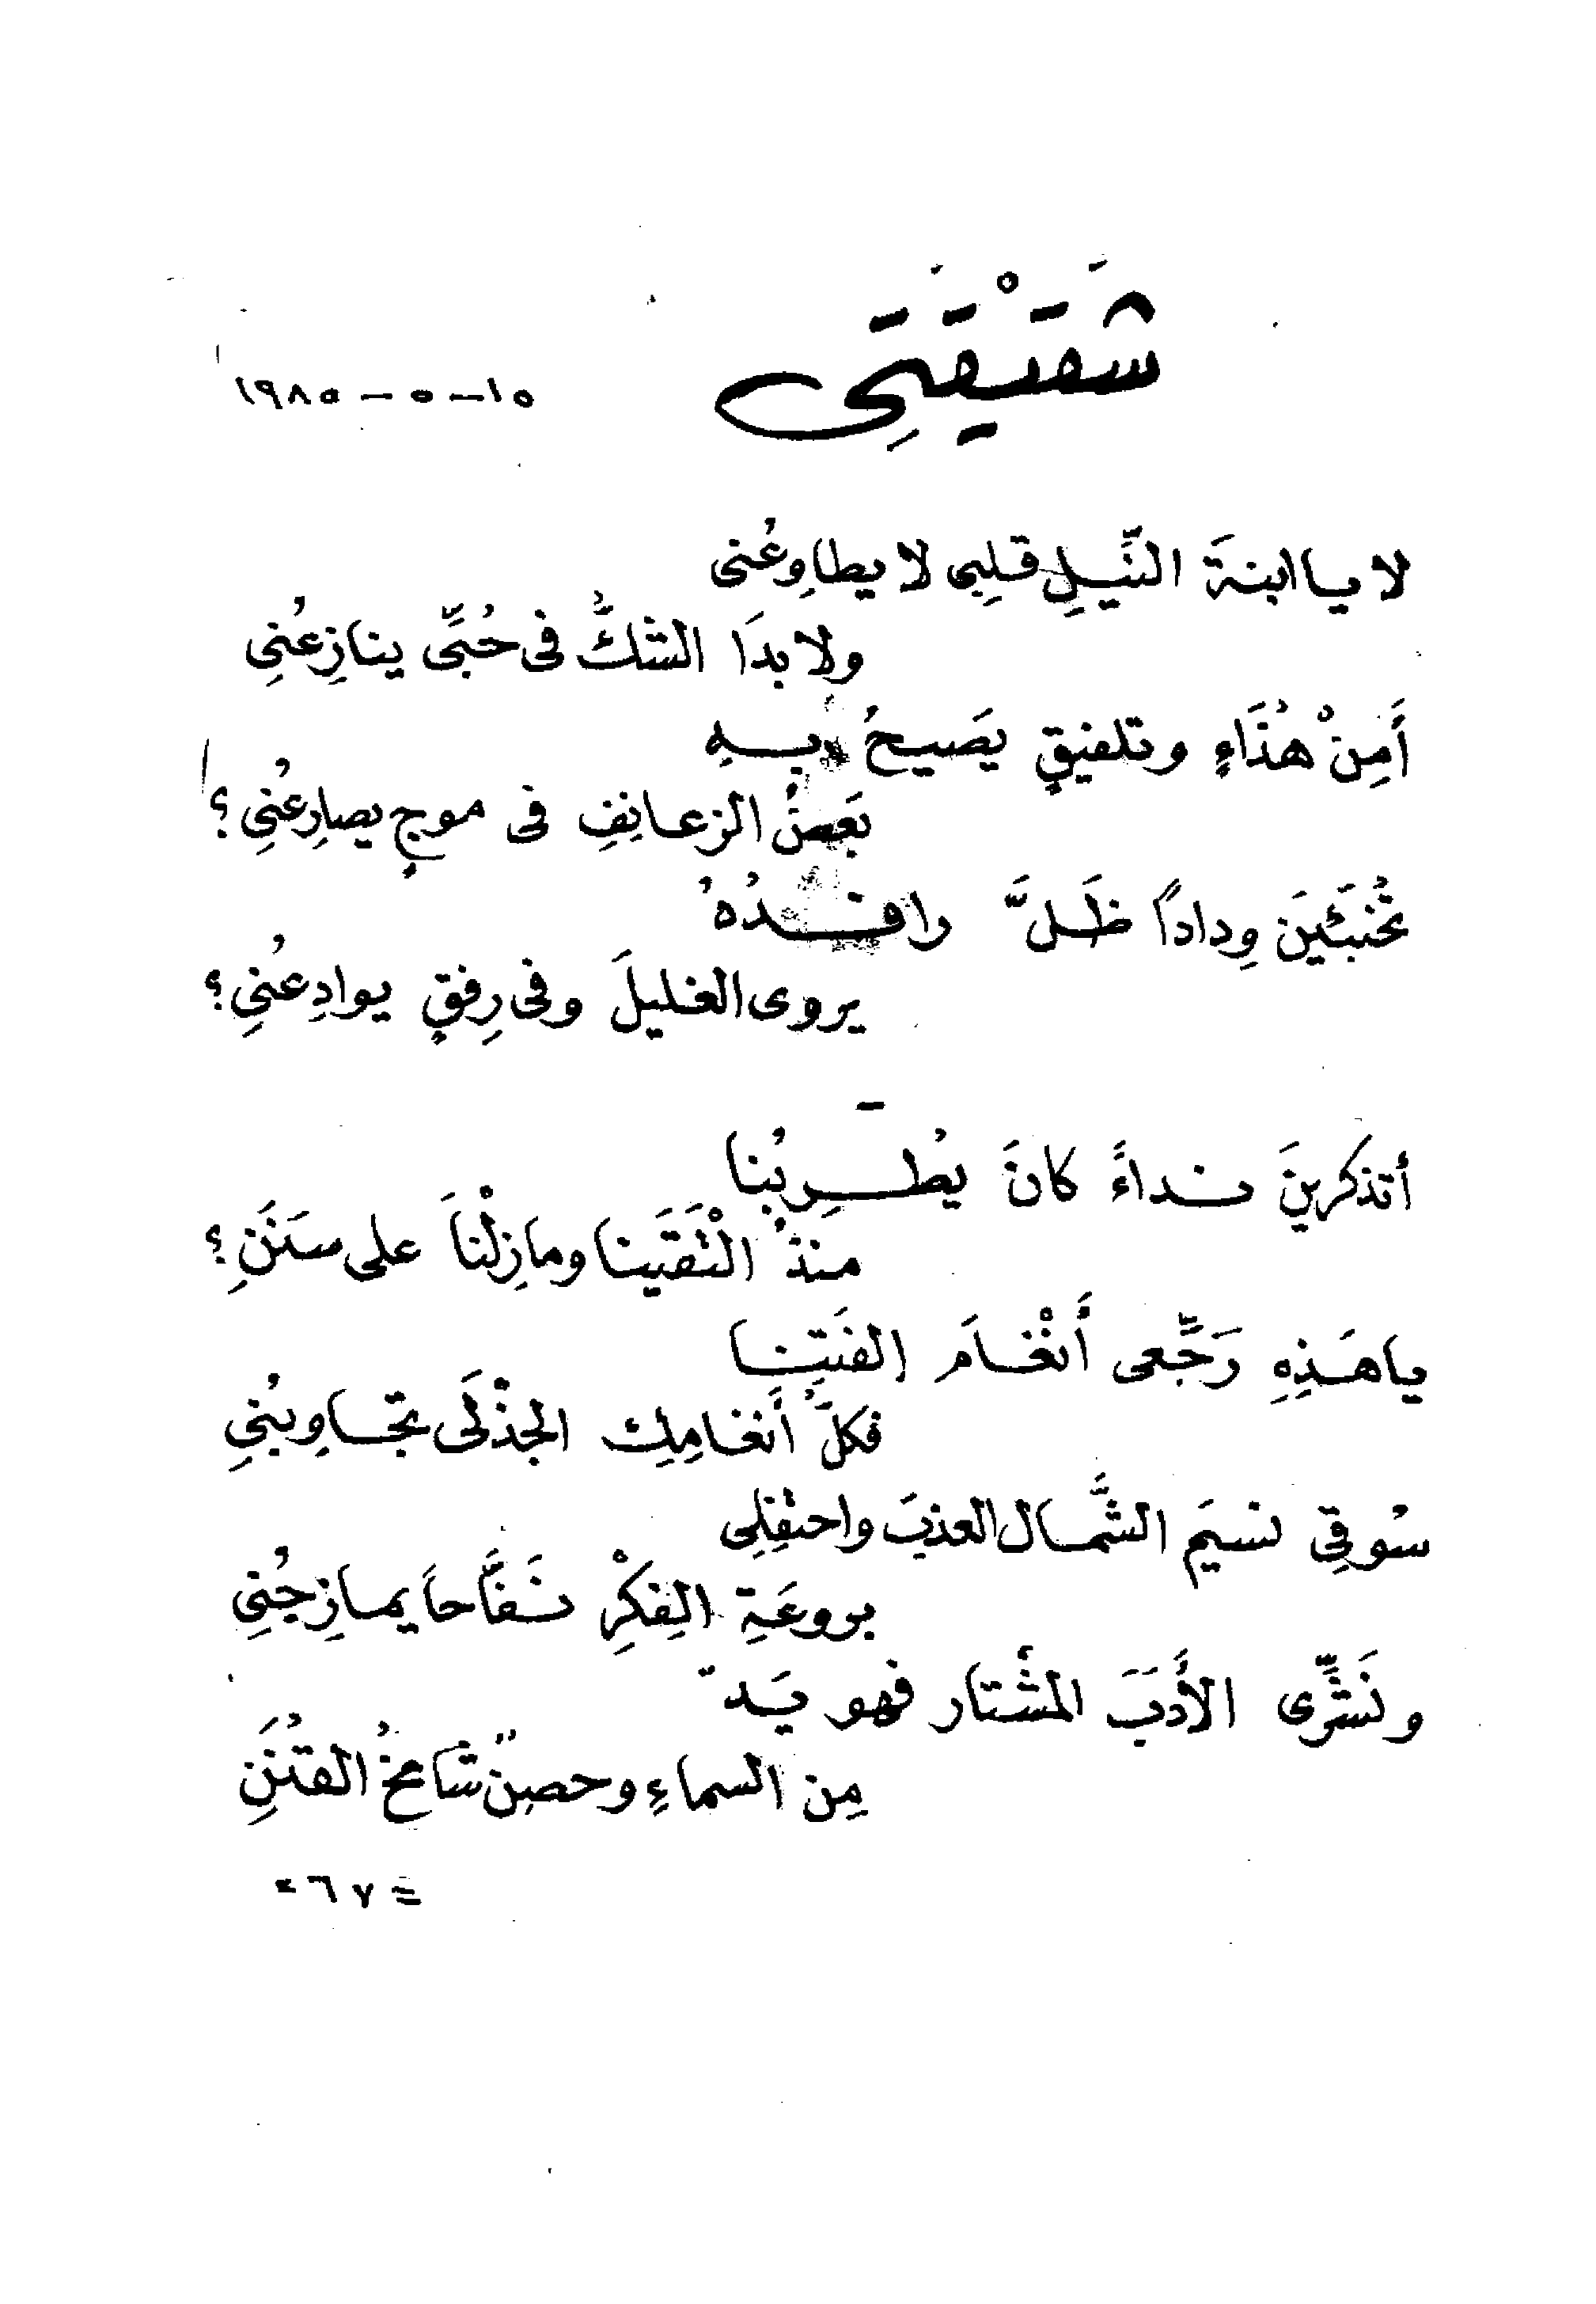 شَقِيْقَتِى
١٥-٥-١٩٨٥
لا يا ابنةَ النِّيلِ قلبِى لا يطاوِعُنى
ولا بدَا الشكُّ فى حُبِّى ينازِعُنِى
أَمِنْ هُذَاءٍ وتلفيقٍ يصَيحُ بهِ
بَعضُ الزعانِفِ فى موجٍ يصارِعُنِى؟
تُخبِّئينَ وِداداً ظَلَّ رافدُهُ
يروى الغليلَ وفى رِفقٍ يوادِعُنِى؟
-
أتذكرينَ نداءً كانَ يُطرِبُنا
منذُ الْتَقَينا ومازِلْناَ على سَنَنِ؟
ياهَذِهِ رَجِّعى أَنْغاَم الفَتِنا
فكلُّ أَنغامِكِ الجذْلَى تجاوِبُنِى
سُوقِى نسيَم الشَّمال العذبَ واحتفِلِى
بروعَةِ الفِكْرِ نَفَّاحاً يمازِجُنِى
ونَشِّرى الأَدَبَ المشْتار فهو يَدٌ
مِن السماءِ وحصِنٌ شَامخُ القُنَنِ
= ٦٧ =